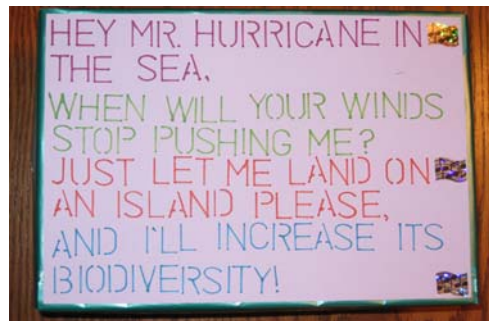 HEY MR. HURRICANE IN
THE SEA,
WHEN WILL YOUR WINDS
STOP PUSHING ME?
JUST LET ME LAND ON
AN ISLAND PLEASE,
AND I'LL INCREASE ITS
BIODIVERSITY!